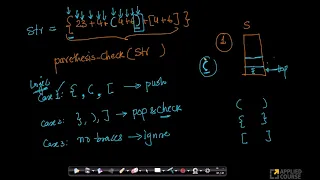 str = { 23 + 4 + ( 4 + 6 ) } + [4+6]
S
①
parethesis-check(str)
Logic
{
top
Case 1: {, (, [ → push
Case 2: }, ), ] → pop & check
( )
{ }
Case 3: no braces → ignore
[ ]
APPLIED
COURSE